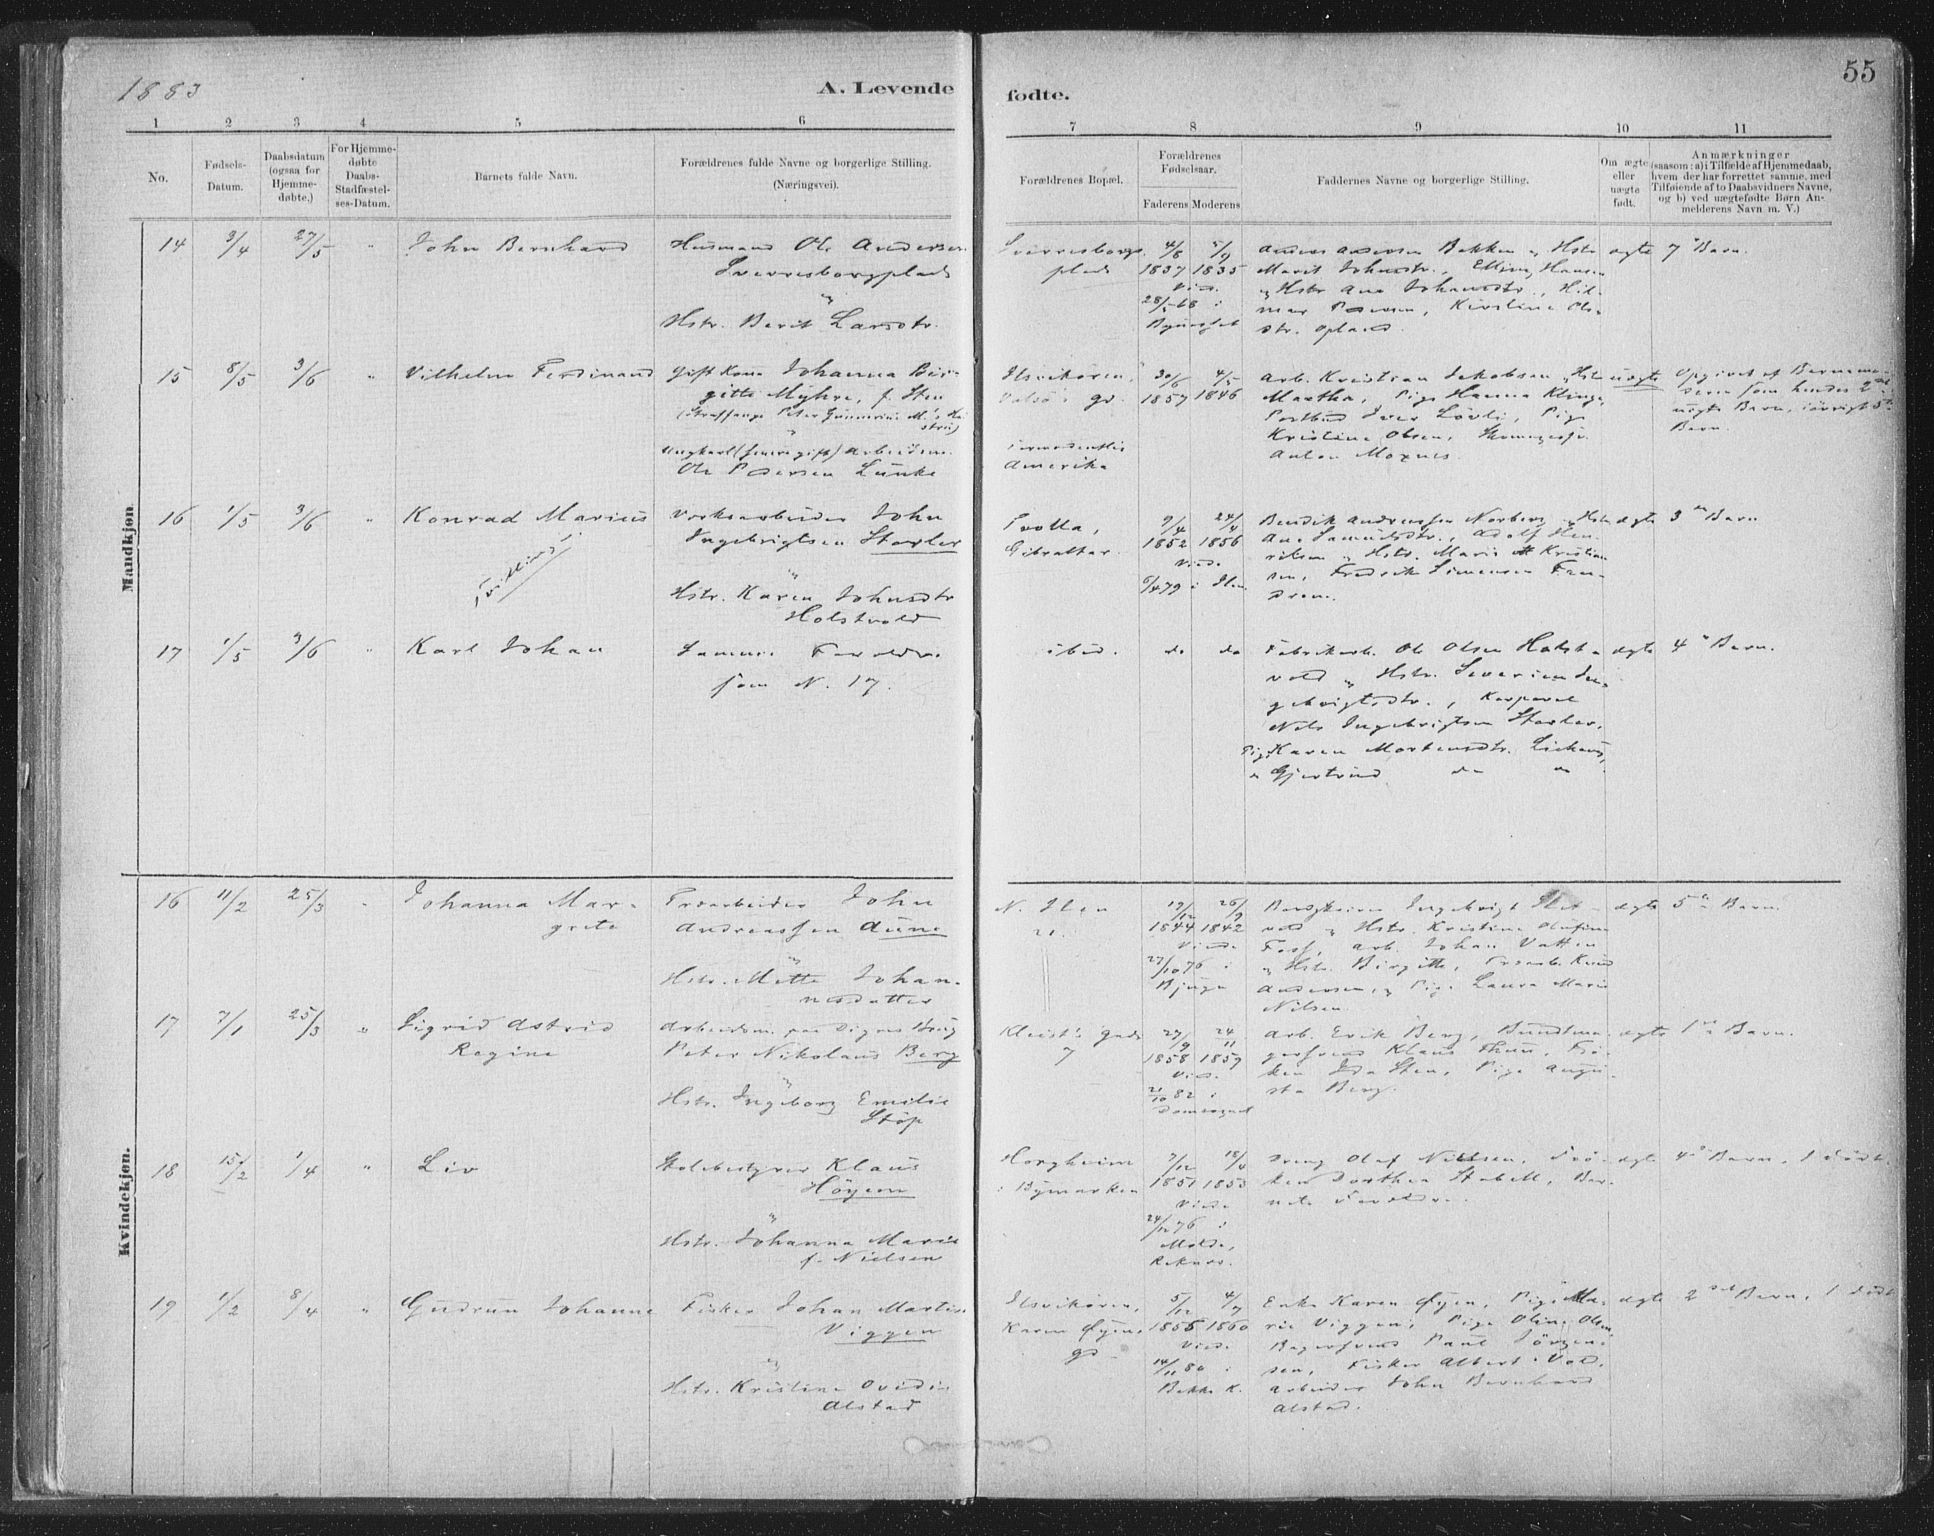 1883
A. Levende
fødte.
55
1 2 3 4 5 6 7 8 9 10 11
No.
Fødsels-
Datum.
Daabsdatum
(ogsaa for
Hjemme-
døbte.)
For Hjemme-
døbte
Daabs-
Stadfæstel-
ses-Datum.
Barnets fulde Navn.
Forældrenes fulde Navne og borgerlige Stilling.
(Næringsvei).
Forældrenes Bopæl.
Forældrenes
Fødselsaar.
Faderens Moderens
Faddernes Navne og borgerlige Stilling.
Om ægte
eller
uægte
født.
Anmærkninger
(saasom: a) i Tilfælde af Hjemmedaab,
hvem der har forrettet samme, med
Tilføiende af to Daabsvidners Navne,
og b) ved uægtefødte Børn An-
melderens Navn m. V.)
Mandkjøn.
14 3/4 27/5 " John Bernhard
Husmand Ole Andersen
Sverresborgplads
Hstr. Berit Larsdtr.
Sverresborgs
plads
4/8 5/9
1837 1835
Vied.
28/5-68 i
Bynesset
Anders Andersen Bakken, Hstr
Marit Johnsdtr., Elling Hansen
Hstr Ane Johansdtr, Hil-
mar Pedersen, Kirstine Ols-
dtr. Opland.
ægte 7" Barn.
15 8/5 3/6 " Vilhelm Ferdinand
Gift Kone Johanna Bir-
gitte Myhre, f. Sten
Ungkarl (senere gift) Arbeidsm.
Ole Pedersen Lunke
Ilsvikøren,
gd.
formodentlig
Amerika
30/6 4/5
1857 1846
Arb. Kristian Jakobsen, Hstr
Martha, Pige Hanna Klinge,
Postbud Iver Løvli, Pige
Kristine Olsen,
Anton Moxnes.
uægte
Opgivet af Barnemo-
deren som hendes 2det
uægte Barn, iøvrigt 5te
Barn.
16 1/5 3/6 " Konrad Marius
Tvilling!
Verksarbeider John
Ingebrigtsen Støxler
Hstr. Karen Johnsdtr
Holstvold
Trolla,
Gibraltar.
9/4 24/4
1852 1856
Viede
6/4 79 i Ilen
Bendik Andreassen Norberg, Hstr
Ane Samuelsdtr., Adolf Hen-
riksen, Hstr. Marie Kristian
sen, Fredrik Simensen Fen-
ægte 3de Barn
17 1/5 3/6 " Karl Johan
Samme Foreldre
som N. 17.
ibid. do do
Fabrikarb. Ole Olsen Holst-
vold, Hstr. Severine In-
gebrigtsdtr., Korporal
Nils Ingebrigtsen Støxler,
Pige Karen Mortensdtr.
" Gjertrud do do
ægte 4" Barn.
Kvindekjøn.
16 11/2 25/3 " Johanna Mar-
grete
Træarbeider John
Andreassen Aune
Hstr. Mette Johan-
nesdatter
N. Ilen
21.
19/12 26/9
1844 1842
Viede
27/10 76 i
Bjugn
Ingebrigt
vold, Hstr. Kristine Olufine
Foss, Arb. Johan Vatten
" Hstr. Birgitte, Træarb. Knud
Andersen, Pige Laura Marie
Nilsen.
ægte 5te Barn.
17 7/1 25/3 " Sigrid Astrid
Regine
Arbeidsm. paa Digres Brug
Peter Nikolaus Berg
Hstr. Ingeborg Emilie
Støp
Kleist's Gade
7
27/9 24/11
1858 1859
Viede
21/10 82 i
Domsognet
Arb. Erik Berg, Bundtma-
gersvend Klaus Thun, Frø-
ken Ida Sten, Pige Augu-
sta Berg.
ægte 1ste Barn.
18 15/2 1/4 " Liv
Skolebestyrer Klaus
Höyem
Hstr. Johanna Marie
f. Nielsen
Horgheim
i Bymarken
7/12 18/4
1851 1853
Viede
24/12 76 i
Molde,
Reknes.
Dreng Olaf Nielsen, Frø-
ken Dorthea Stabell, Bar-
nets Foreldre.
ægte 4de Barn, 1 dødf.
19 1/2 8/4 " Gudrun Johanne
Fisker Johan Martin
Viggen
Hstr. Kristine Ovidie
Alstad
Ilsvikøren,
Karen Øyens
gd
5/12 4/7
1856 1860
Viede
14/11 80 i
Bakke K.
Enke Karen Øyen, Pige Ma-
rie Viggen, Pige Oline Olsen
Bagersvend Paul Jörgen-
sen, Fisker Albert Vold,
Arbeider John Bernhard
Alstad.
ægte 2det Barn, 1 dødf.